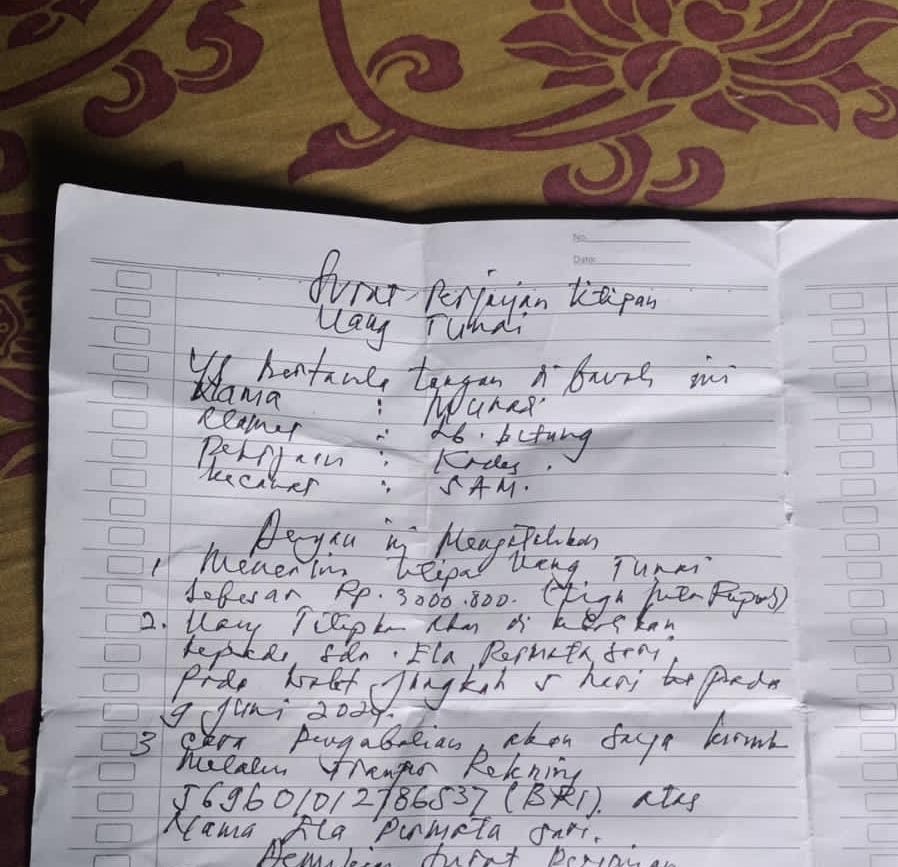 No.
Date:
Surat Perjanjian titipan
Uang Tunai
Yg bertanda tangan di bawah ini
Nama : Munas
Alamat : Lb. bitung
Pekerjaan : Kades.
Kecamat : SAM.
Dengan ini Mengatakan
1 Menerima titipan Uang Tunai
Sebesar Rp. 3000.800. (Tiga juta Rupiah)
2. Uang Titipan akan di
kepada sdr. Ela Permata Sari.
Pada Jangkah 5 hari pada
9 Juni 202
3 Cara Pengabalian akan Saya kirimk
Melalui Rekning
569601012786537 (BRI). atas
Nama Ela Permata Sari.
Demikian Surat Perjanjian